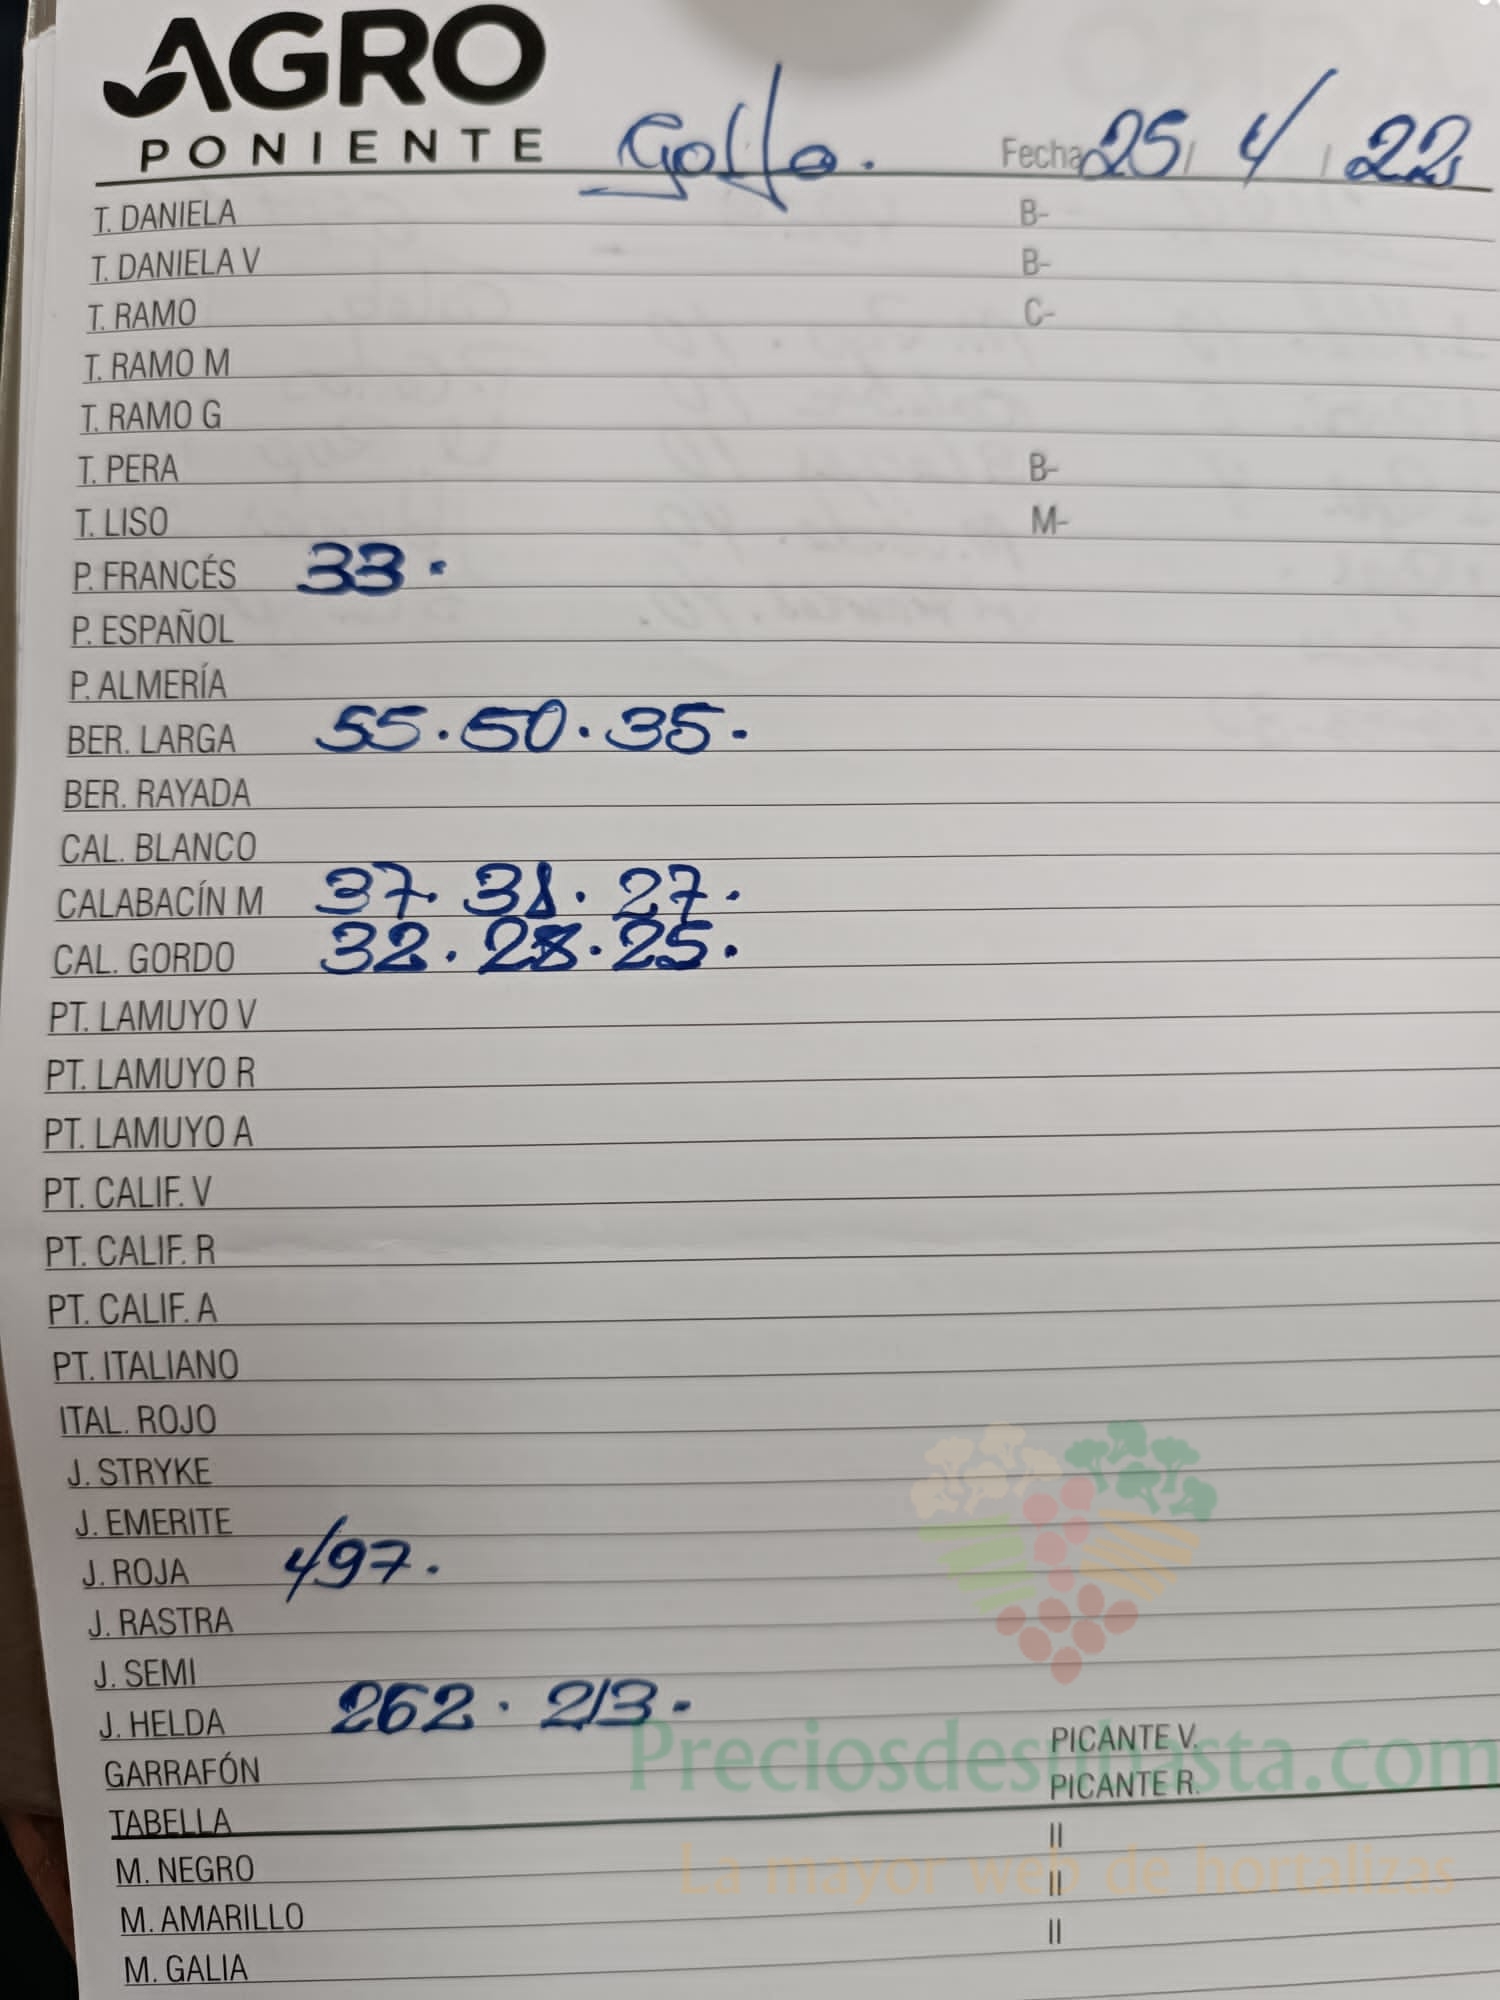 AGRO
PONIENTE
Golfo. Fecha 25/ 4/ / 22
T. DANIELA B-
T. DANIELA V B-
T. RAMO C-
T. RAMO M
T. RAMO G
T. PERA B-
T. LISO M-
P. FRANCÉS 33.
P. ESPAÑOL
P. ALMERÍA
BER. LARGA 55.50.35.
BER. RAYADA
CAL. BLANCO
CALABACÍN M 37. 31. 27.
CAL. GORDO 32. 28. 25.
PT. LAMUYO V
PT. LAMUYO R
PT. LAMUYO A
PT. CALIF. V
PT. CALIF. R
PT. CALIF. A
PT. ITALIANO
ITAL. ROJO
J. STRYKE
J. EMERITE
J. ROJA 497.
J. RASTRA
J. SEMI
J. HELDA 262. 213.
GARRAFÓN PICANTE V.
TABELLA PICANTE R.
M. NEGRO II
M. AMARILLO II
M. GALIA II
Preciosdesubasta.com
La mayor web de hortalizas